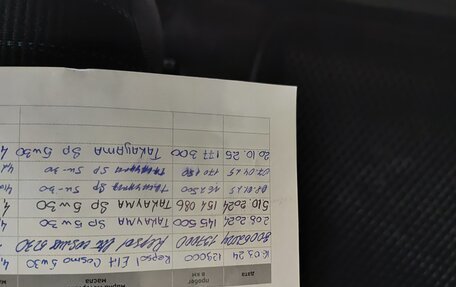 дата пробег в км марка масла
03.24 129000 Repsol Elit Cosmo 5w30 4,
30062024 137000 Repsol cosmos 5w30 4,
2.08 2024 145 500 TAKAYAMA Sp 5w30 4,
10 2024 154 086 TAKAYMA Sp 5w30 4,
01.25 162500 SP 5w-30 4,
07.04.25 170 SP 5w-30 4,
20.10.25 177 300 TAKAYAMA Sp 5w30 4